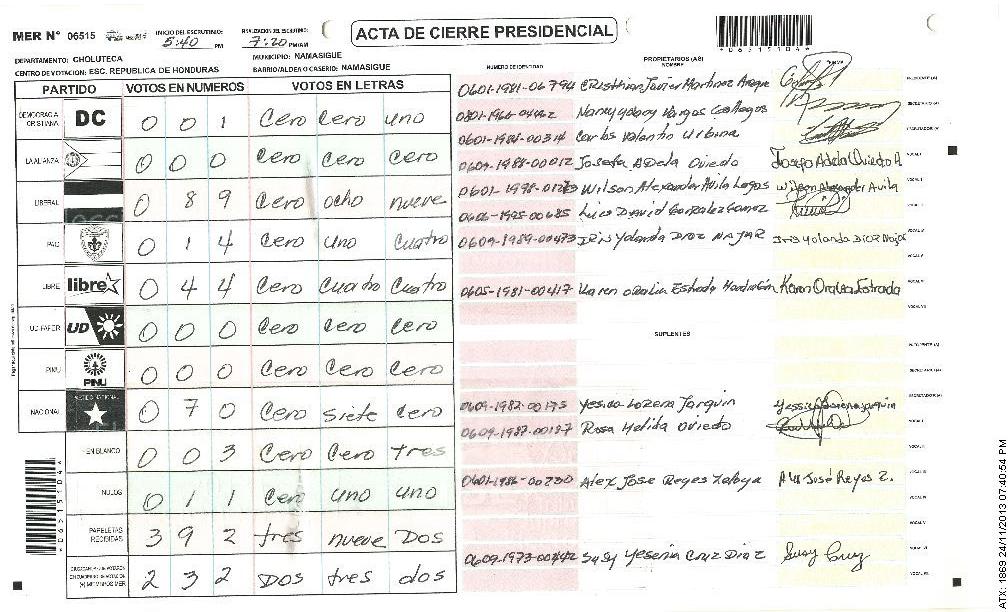 MER N° 06515
INICIO DEL ESCRUTINIO: 5:40 PM
FINALIZACION DEL ESCRUTINIO: 7:20 PM/AM
ACTA DE CIERRE PRESIDENCIAL
*06515104*
DEPARTAMENTO: CHOLUTECA
MUNICIPIO: NAMASIGUE
CENTRO DE VOTACION: ESC. REPUBLICA DE HONDURAS
BARRIO/ALDEA O CASERIO: NAMASIGUE
PARTIDO VOTOS EN NUMEROS VOTOS EN LETRAS
DEMOCRACIA CRISTIANA DC 0 0 1 Cero Cero uno
LA ALIANZA 0 0 0 Cero Cero Cero
LIBERAL 0 8 9 Cero ocho nueve
PAC 0 1 4 Cero uno cuatro
LIBRE libre 0 4 4 Cero Cuatro Cuatro
UD-FAPER UD 0 0 0 Cero Cero Cero
PINU PINU 0 0 0 Cero Cero Cero
NACIONAL 0 7 0 Cero siete Cero
EN BLANCO 0 0 3 Cero Cero tres
NULOS 0 1 1 Cero uno uno
PAPELETAS RECIBIDAS 3 9 2 tres nueve Dos
2 3 2 Dos tres dos
*06515104*
NUMERO DE IDENTIDAD
PROPIETARIOS (AS)
NOMBRE
FIRMA
0601-1981-06794 Cristhian Javier Martinez
PRESIDENTE (A)
Vargas
SECRETARIO (A)
0601-1988-00314 Carlos Valentin Urbina
ESCRUTADOR (A)
0609-1988-00012 Josefa Adela Oviedo Josefa Adela Oviedo A.
VOCAL I
Wilson Alexander Avila Lagos Wilson Alexander Avila
VOCAL II
0606-1995-00685 David Gonzalez Gomez
0609-1989-00473 Iris Yolanda DIAZ NAJAR Iris Yolanda DIAZ Najar
0605-1981-00417 Karen Oralia Estrada Karen Oralia Estrada
SUPLENTES
PRESIDENTE (A)
SECRETARIO (A)
0609-1982-00175 Yesica Lorena Jarquin Yessica Lorena Jarquin
ESCRUTADOR (A)
0609-1987-00187 Rosa Melida Oviedo
0601-1986-00230 Alex Jose Reyes Zelaya Alex José Reyes Z.
Susy Yesenia Cruz Diaz Susy Cruz
ATX: 1869 24/11/2013 07:40:54 PM